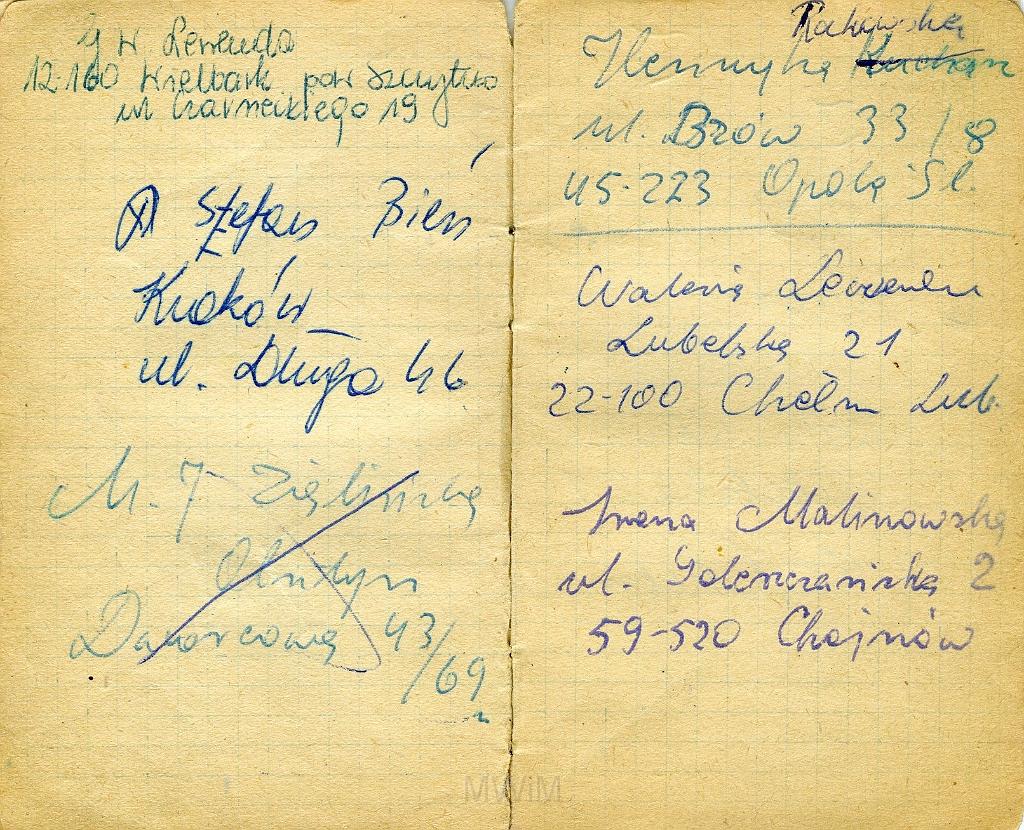 J W Lewenda
12-160 Wielbark pow Szczytno
ul Czarnieckiego 19
Stefan Bień
Kraków
ul. Długa 46
M. J Zielińska
Olsztyn
Dworcowa 43/69
Rakowska
Henryka
ul. Bzów 33/8
45-223 Opole Śl.
Waleria
Lubelska 21
22-100 Chełm Lub.
Irena Malinowska
ul. 2
59-520 Chojnów
MWiM